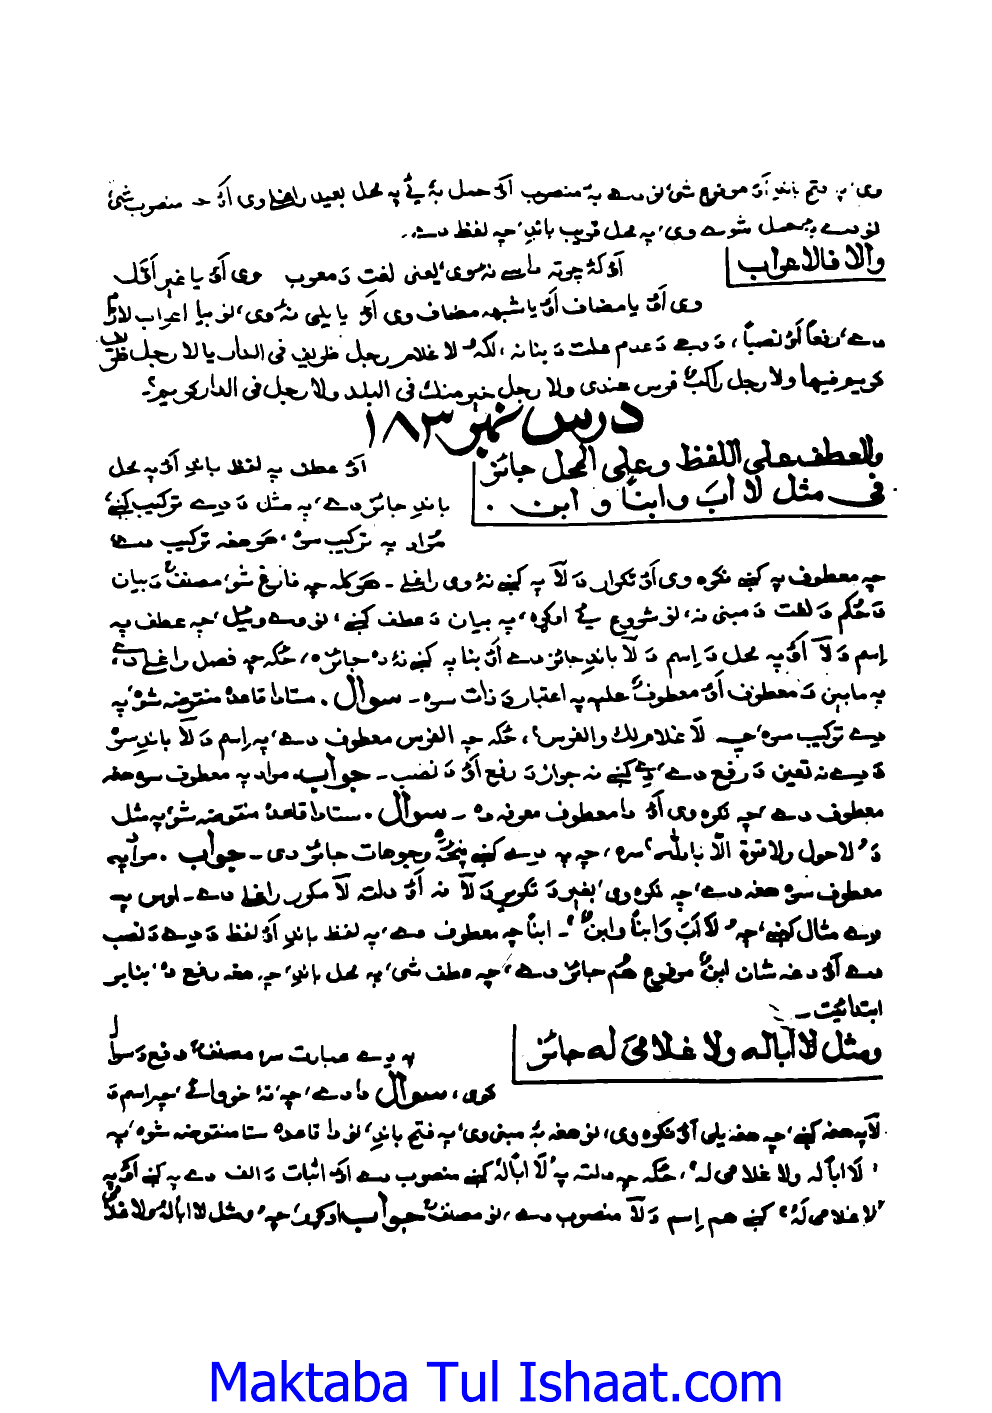 وی، په فتح باندِ اَؤ مرفوع شئ نو دے بهٔ منصوب اَؤ حمل بهٔ ئے په محل بعید راغله وی اَؤ منصوب شئ
نو دے به حمل شوے وی، په محل قریب باندِ، چه لفظ دے۔
والا فالاعراب
اَؤ کهٔ چرته داسے نهٔ وی، یعنی نعت دَ معرب وی اَؤ یا غیر اَوّل
وی اَؤ یا مضاف اَؤ یا شبهه مضاف وی اَؤ یا یلی نهٔ وی، نو بیا اعراب لاړ
دے، رفعاً اَؤ نصباً، دَ وجے دَ عدم علت دَ بناء نه، لکه لا غلام رجل ظریف فی الدار یا لا رجل ظریف
کریم فیها ولا رجل راکبُ فرس عندی ولا رجل خیر منك فی البلد ولا رجل فی الدار کریم؟۔
درس نمبر ۱۸۳
والعطف علی اللفظ وعلی المحل جائز
فی مثل لا اَبَ وابناً و ابن ۰
اَؤ عطف په لفظ باندِ اَؤ په محل
باندِ جائز دے، په مثل دَ دے ترکیب کښے
مُراد په ترکیب سره، هر هغه ترکیب دے،
چه معطوف په کښے نکره وی اَؤ تکرار دَ لَا په کښے نهٔ وی راغلے۔ هر کله چه فارغ شو، مصنفؒ دَ بیان
دَ حُکم دَ نعت دَ مبنی نه، نو شروع یے اوکړه، په بیان دَ عطف کښے، نو دے وئیل، چه عطف په
اِسم دَ لَا اَؤ په محل دَ اِسم دَ لَا باندِ جائز دے اَؤ بنا په کښے نهٔ ده جائزه، ځکه چه فصل راغلے دے،
په مابین دَ معطوف اَؤ معطوفٌ علیه په اعتبار دَ ذات سره۔ سوال۔ ستا دا قاعده منقوضه شوه په
دے ترکیب سره، چه لَا غلام لك والفرس؟، ځکه چه الفرس معطوف دے، په اِسم دَ لَا باندِ سره
دَ دے نه تعین دَ رفع دے، دے کښے نه جواز دَ رفع اَؤ دَ نصب۔ جواب۔ مراد په معطوف سره هغه
معطوف دے، چه نکره وی اَؤ دا معطوف معرفه ده۔ سوال۔ ستا دا قاعده منقوضه شوه په مثل
دَ "لا حول ولا قوة الّا بالله" سره، چه په دے کښے پنځهٔ وجوهات جائز دی۔ جواب۔ مراد په
معطوف سره هغه دے، چه نکره وی، بغیر دَ تکریر دَ لَا نه اَؤ دلته لَا مکرر راغله دے۔ اوس په
دے مثال کښے، چه "لَا اَبَ وَابناً وابنٌ"۔ ابناً چه معطوف دے، په لفظ باندِ اَؤ لفظ دَ دے دَ نصب
دے اَؤ دغه شان ابنٌ مرفوع هُم جائز دے، چه عطف شی، په محل باندِ، چه هغه رفع ده، بنا بر
ابتدائیت۔
ومثل لا اَبا له ولا غلامَی له جائز
په دے عبارت سره مصنفؒ دفع دَ سوال
کوی، سوال دا دے، چه تهٔ خو وائے، چه اِسم دَ
لَا په هغه کښے، چه هغه یلی اَؤ نکره وی، نو هغه بهٔ مبنی وی، په فتح باندِ، نو دا قاعده ستا منقوضه شوه، په
"لَا اباً له ولا غلامَی له"، ځکه چه دلته په "لَا اباً له" کښے منصوب دے اَؤ اثبات دَ الف دے په کښے اَؤ په
"لا غلامَی لهٔ" کښے هم اِسم دَ لَا منصوب دے، نو مصنفؒ جواب اوکړو، چه "ومثل لا اباً لهٔ ولا غلامَی
Maktaba Tul Ishaat.com